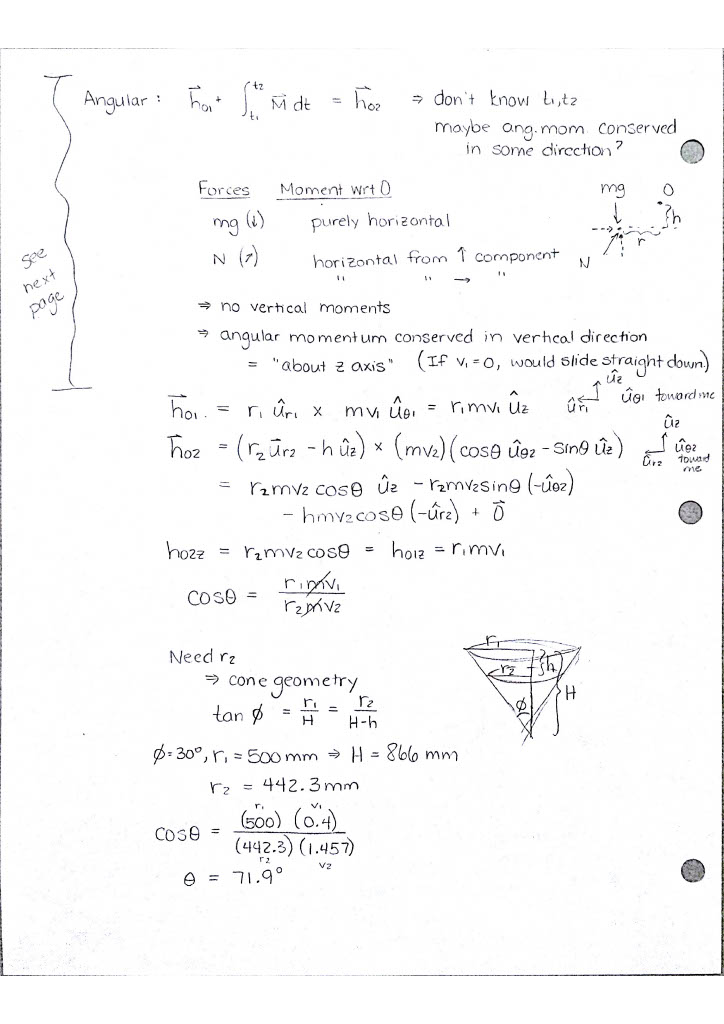 Angular : h⃗o1 + ∫t1^t2 M⃗ dt = h⃗o2 ⇒ don't know t1,t2
maybe ang. mom. conserved
in some direction?
Forces Moment wrt O
mg (↓) purely horizontal
N (↗) horizontal from ↑ component
" " → "
mg O
h
r
N
see
next
page
⇒ no vertical moments
⇒ angular momentum conserved in vertical direction
= "about z axis" (If v1=0, would slide straight down.)
h⃗o1. = r1 ûr1 × mv1 ûθ1 = r1mv1 ûz
ûz
ûr1 ûθ1 toward me
h⃗o2 = (r2 ûr2 - h ûz) × (mv2)(cosθ ûθ2 - sinθ ûz)
ûz
ûr2 ûθ2 toward me
= r2mv2 cosθ ûz - r2mv2sinθ (-ûθ2)
- hmv2cosθ (-ûr2) + 0⃗
ho2z = r2mv2cosθ = ho1z = r1mv1
cosθ = r1mv1 / r2mv2
Need r2
⇒ cone geometry
tan ϕ = r1/H = r2/H-h
r1
r2
h
H
ϕ
ϕ=30°, r1 = 500 mm ⇒ H = 866 mm
r2 = 442.3 mm
cosθ = (500) (0.4) / (442.3) (1.457)
r1 v1
r2 v2
θ = 71.9°